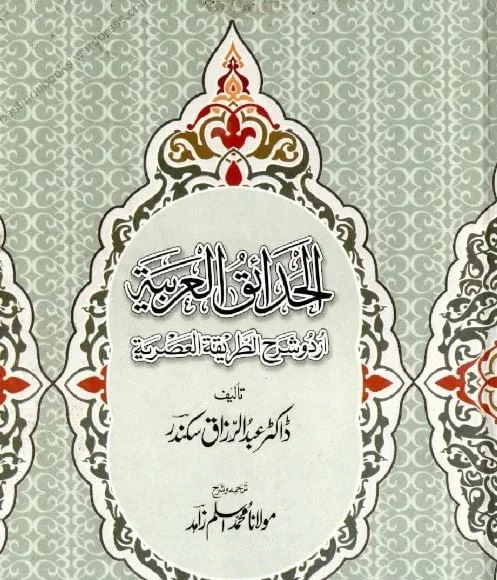 الحدائق العربية
اردو شرح الطریقة العصریة
تالیف
ڈاکٹر عبدالرزاق سکندر
ترجمہ و شرح
مولانا محمد اسلم زاہد